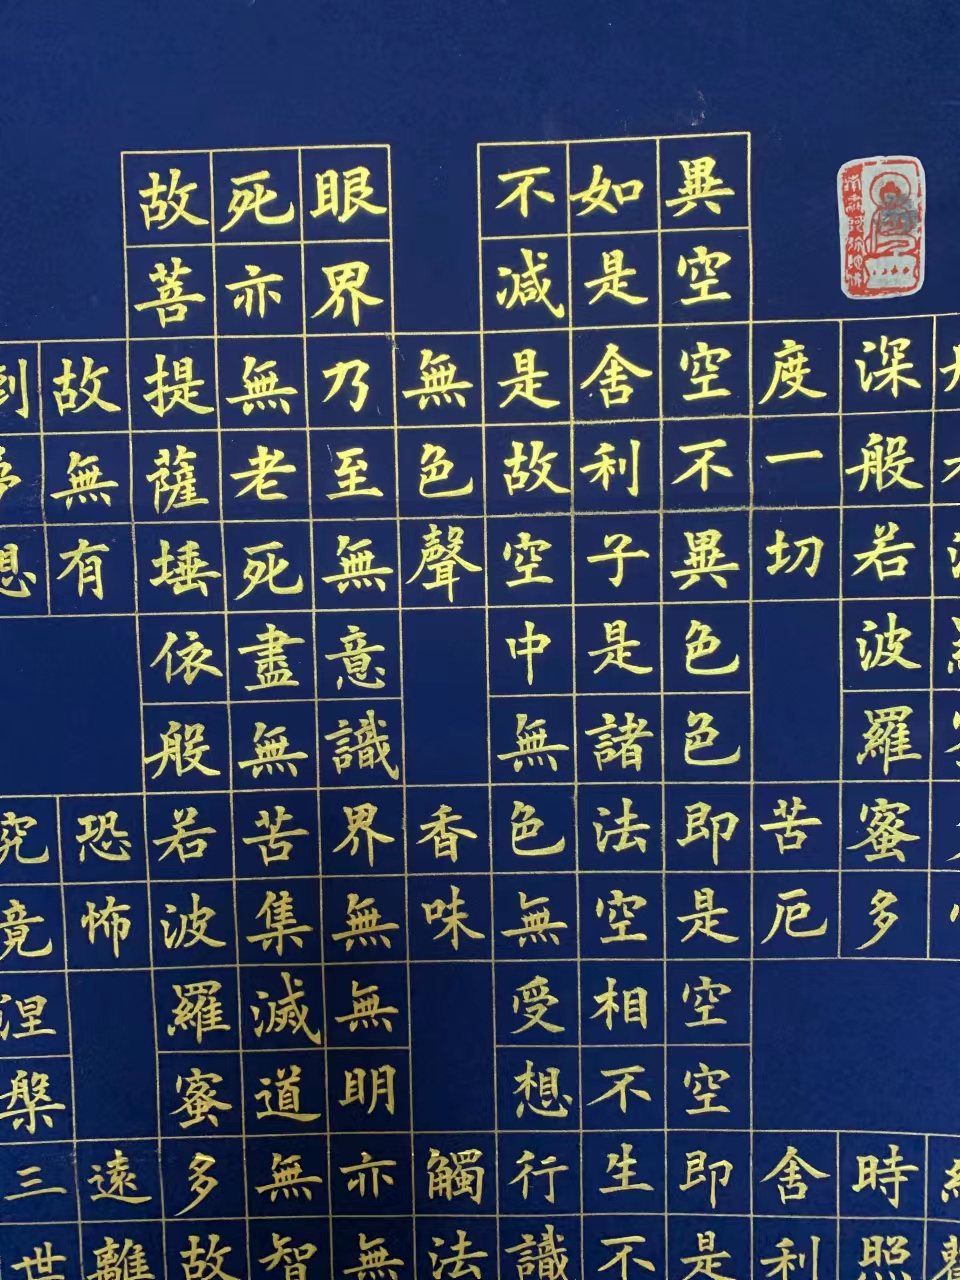 深般若波羅蜜多時照
度一切苦厄舍利
異空空不異色色即是空空即是
如是舍利子是諸法空相不生不
不減是故空中無色無受想行識
無色聲香味觸法
眼界乃至無意識界無無明亦無
死亦無老死盡無苦集滅道無智
故菩提薩埵依般若波羅蜜多故
故無有恐怖遠離
想究竟涅槃三世